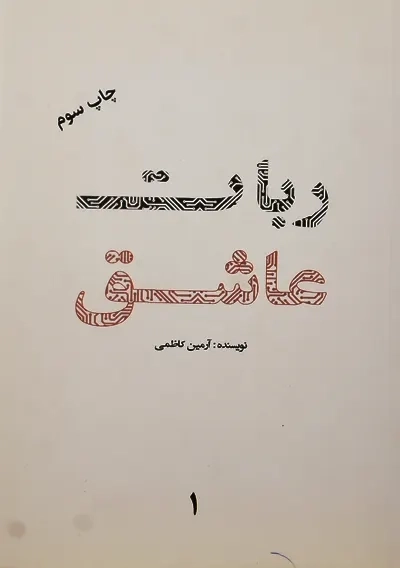 چاپ سوم
ربات
عاشق
نویسنده: آرمین کاظمی
۱